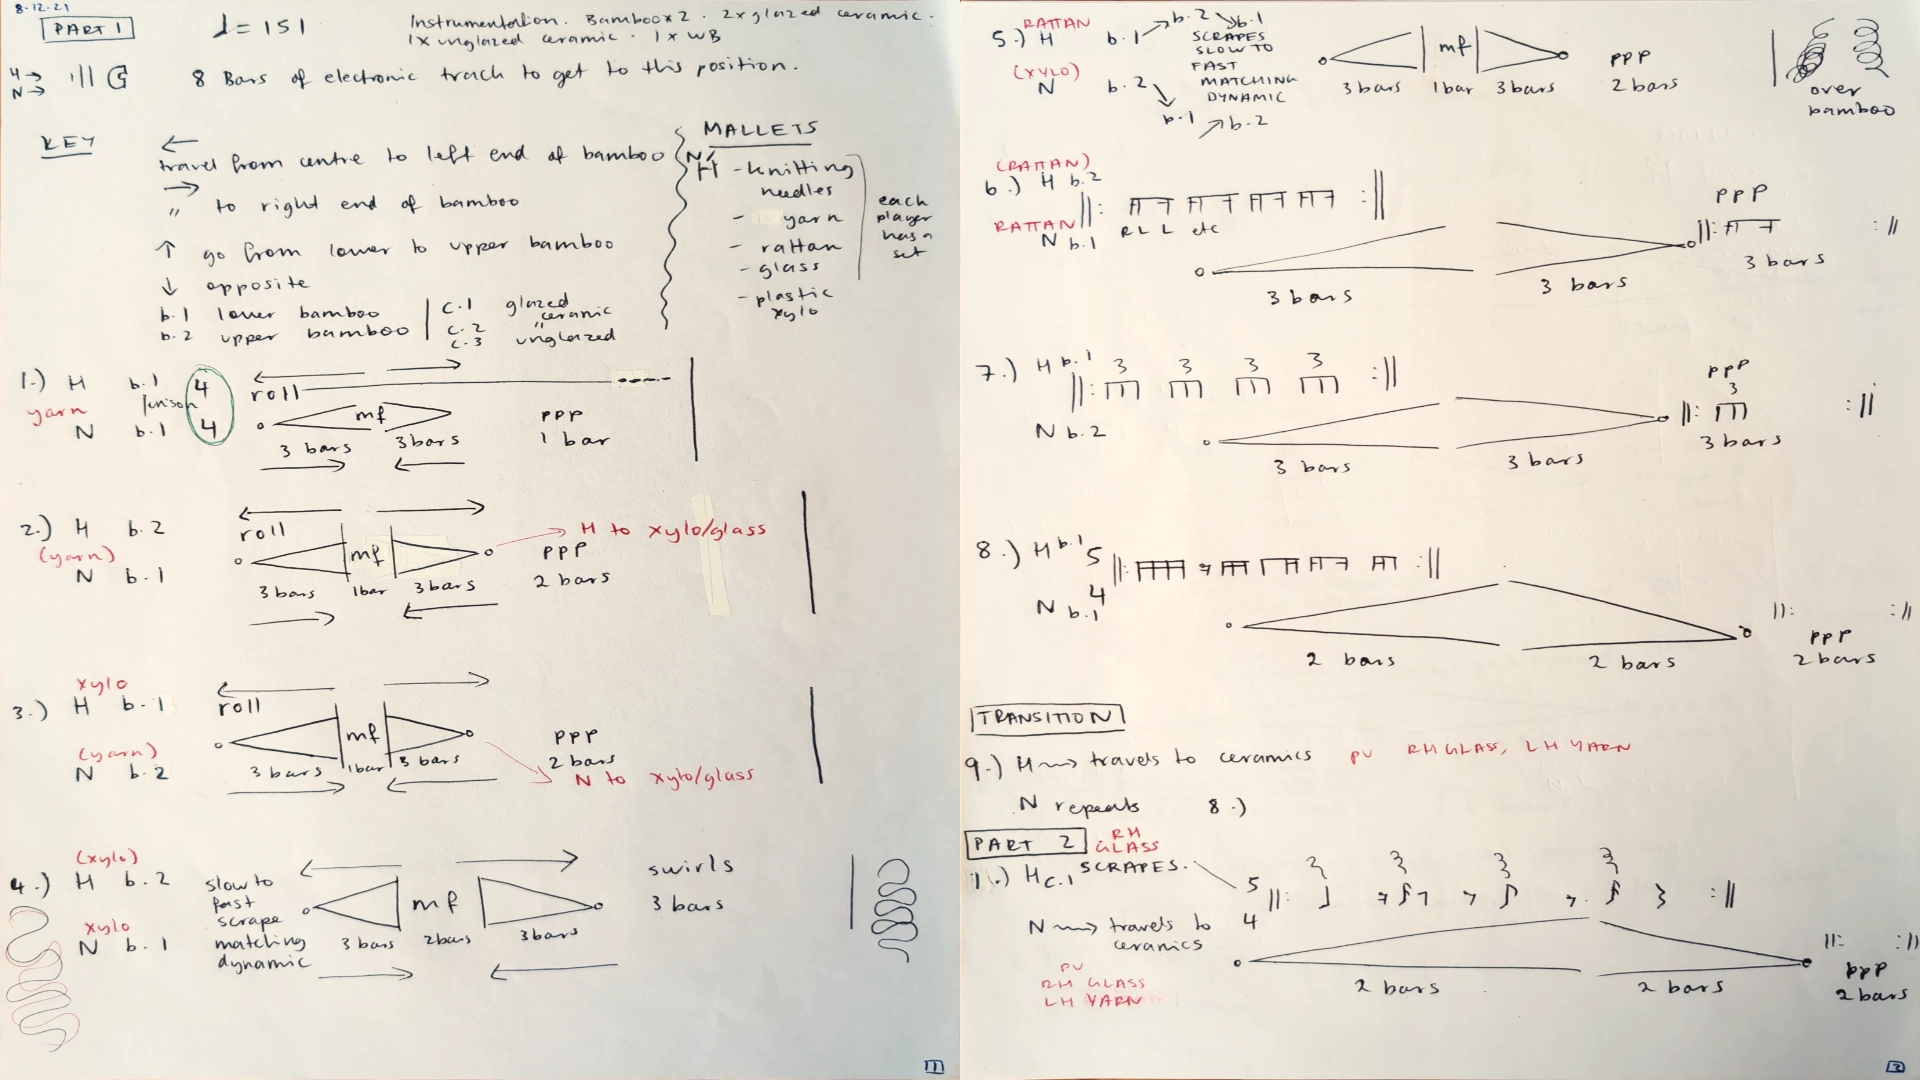 8.12.21
PART 1
♩= 151
Instrumentation. Bamboo x 2. 2 x glazed ceramic.
1 x unglazed ceramic. 1 x WB
H →
N →
8 Bars of electronic track to get to this position.
KEY
←
travel from centre to left end of bamboo
→
" to right end of bamboo
↑ go from lower to upper bamboo
↓ opposite
b.1 lower bamboo
b.2 upper bamboo
c.1 glazed ceramic
c.2 "
c.3 unglazed
MALLETS
N
H - knitting needles
- yarn
- rattan
- glass
- plastic xylo
each player has a set
1.) H b.1 4 roll
yarn
N b.1 4
mf
3 bars 3 bars
ppp
1 bar
2.) H b.2 roll
(yarn)
N b.1
mf
3 bars 1 bar 3 bars
→ H to xylo/glass
ppp
2 bars
xylo
3.) H b.1 roll
(yarn)
N b.2
mf
3 bars 1 bar 3 bars
ppp
2 bars
N to xylo/glass
(xylo)
4.) H b.2
xylo
N b.1
slow to
fast
scrape
matching
dynamic
mf
3 bars 2 bars 3 bars
swirls
3 bars
1
RATTAN
5.) H b.1 b.2 b.1
(XYLO)
N b.2 b.1 b.2
SCRAPES
SLOW TO
FAST
MATCHING
DYNAMIC
mf
3 bars 1 bar 3 bars
ppp
2 bars
over
bamboo
(RATTAN)
6.) H b.2
RATTAN
N b.1
R L L etc
3 bars 3 bars
ppp
3 bars
7.) H b.1 3 3 3 3
N b.2
3 bars 3 bars
ppp
3
3 bars
8.) H b.1 5
N b.1 4
2 bars 2 bars
ppp
2 bars
TRANSITION
9.) H travels to ceramics pu RH GLASS, LH YARN
N repeats 8.)
PART 2
RH
GLASS
1.) H c.1 SCRAPES. 5
N travels to 4
ceramics
pu
RH GLASS
LH YARN
2 bars 2 bars
ppp
2 bars
2